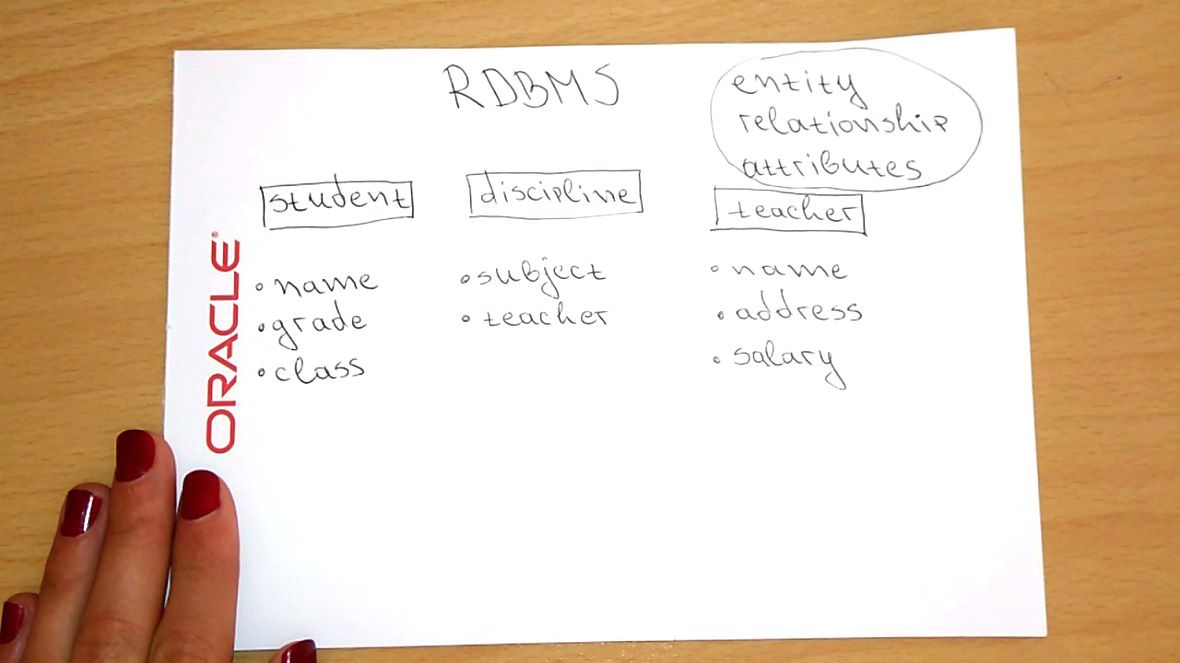 RDBMS
entity
relationship
attributes
student
discipline
teacher
• name
• grade
• class
• subject
• teacher
• name
• address
• salary
ORACLE®